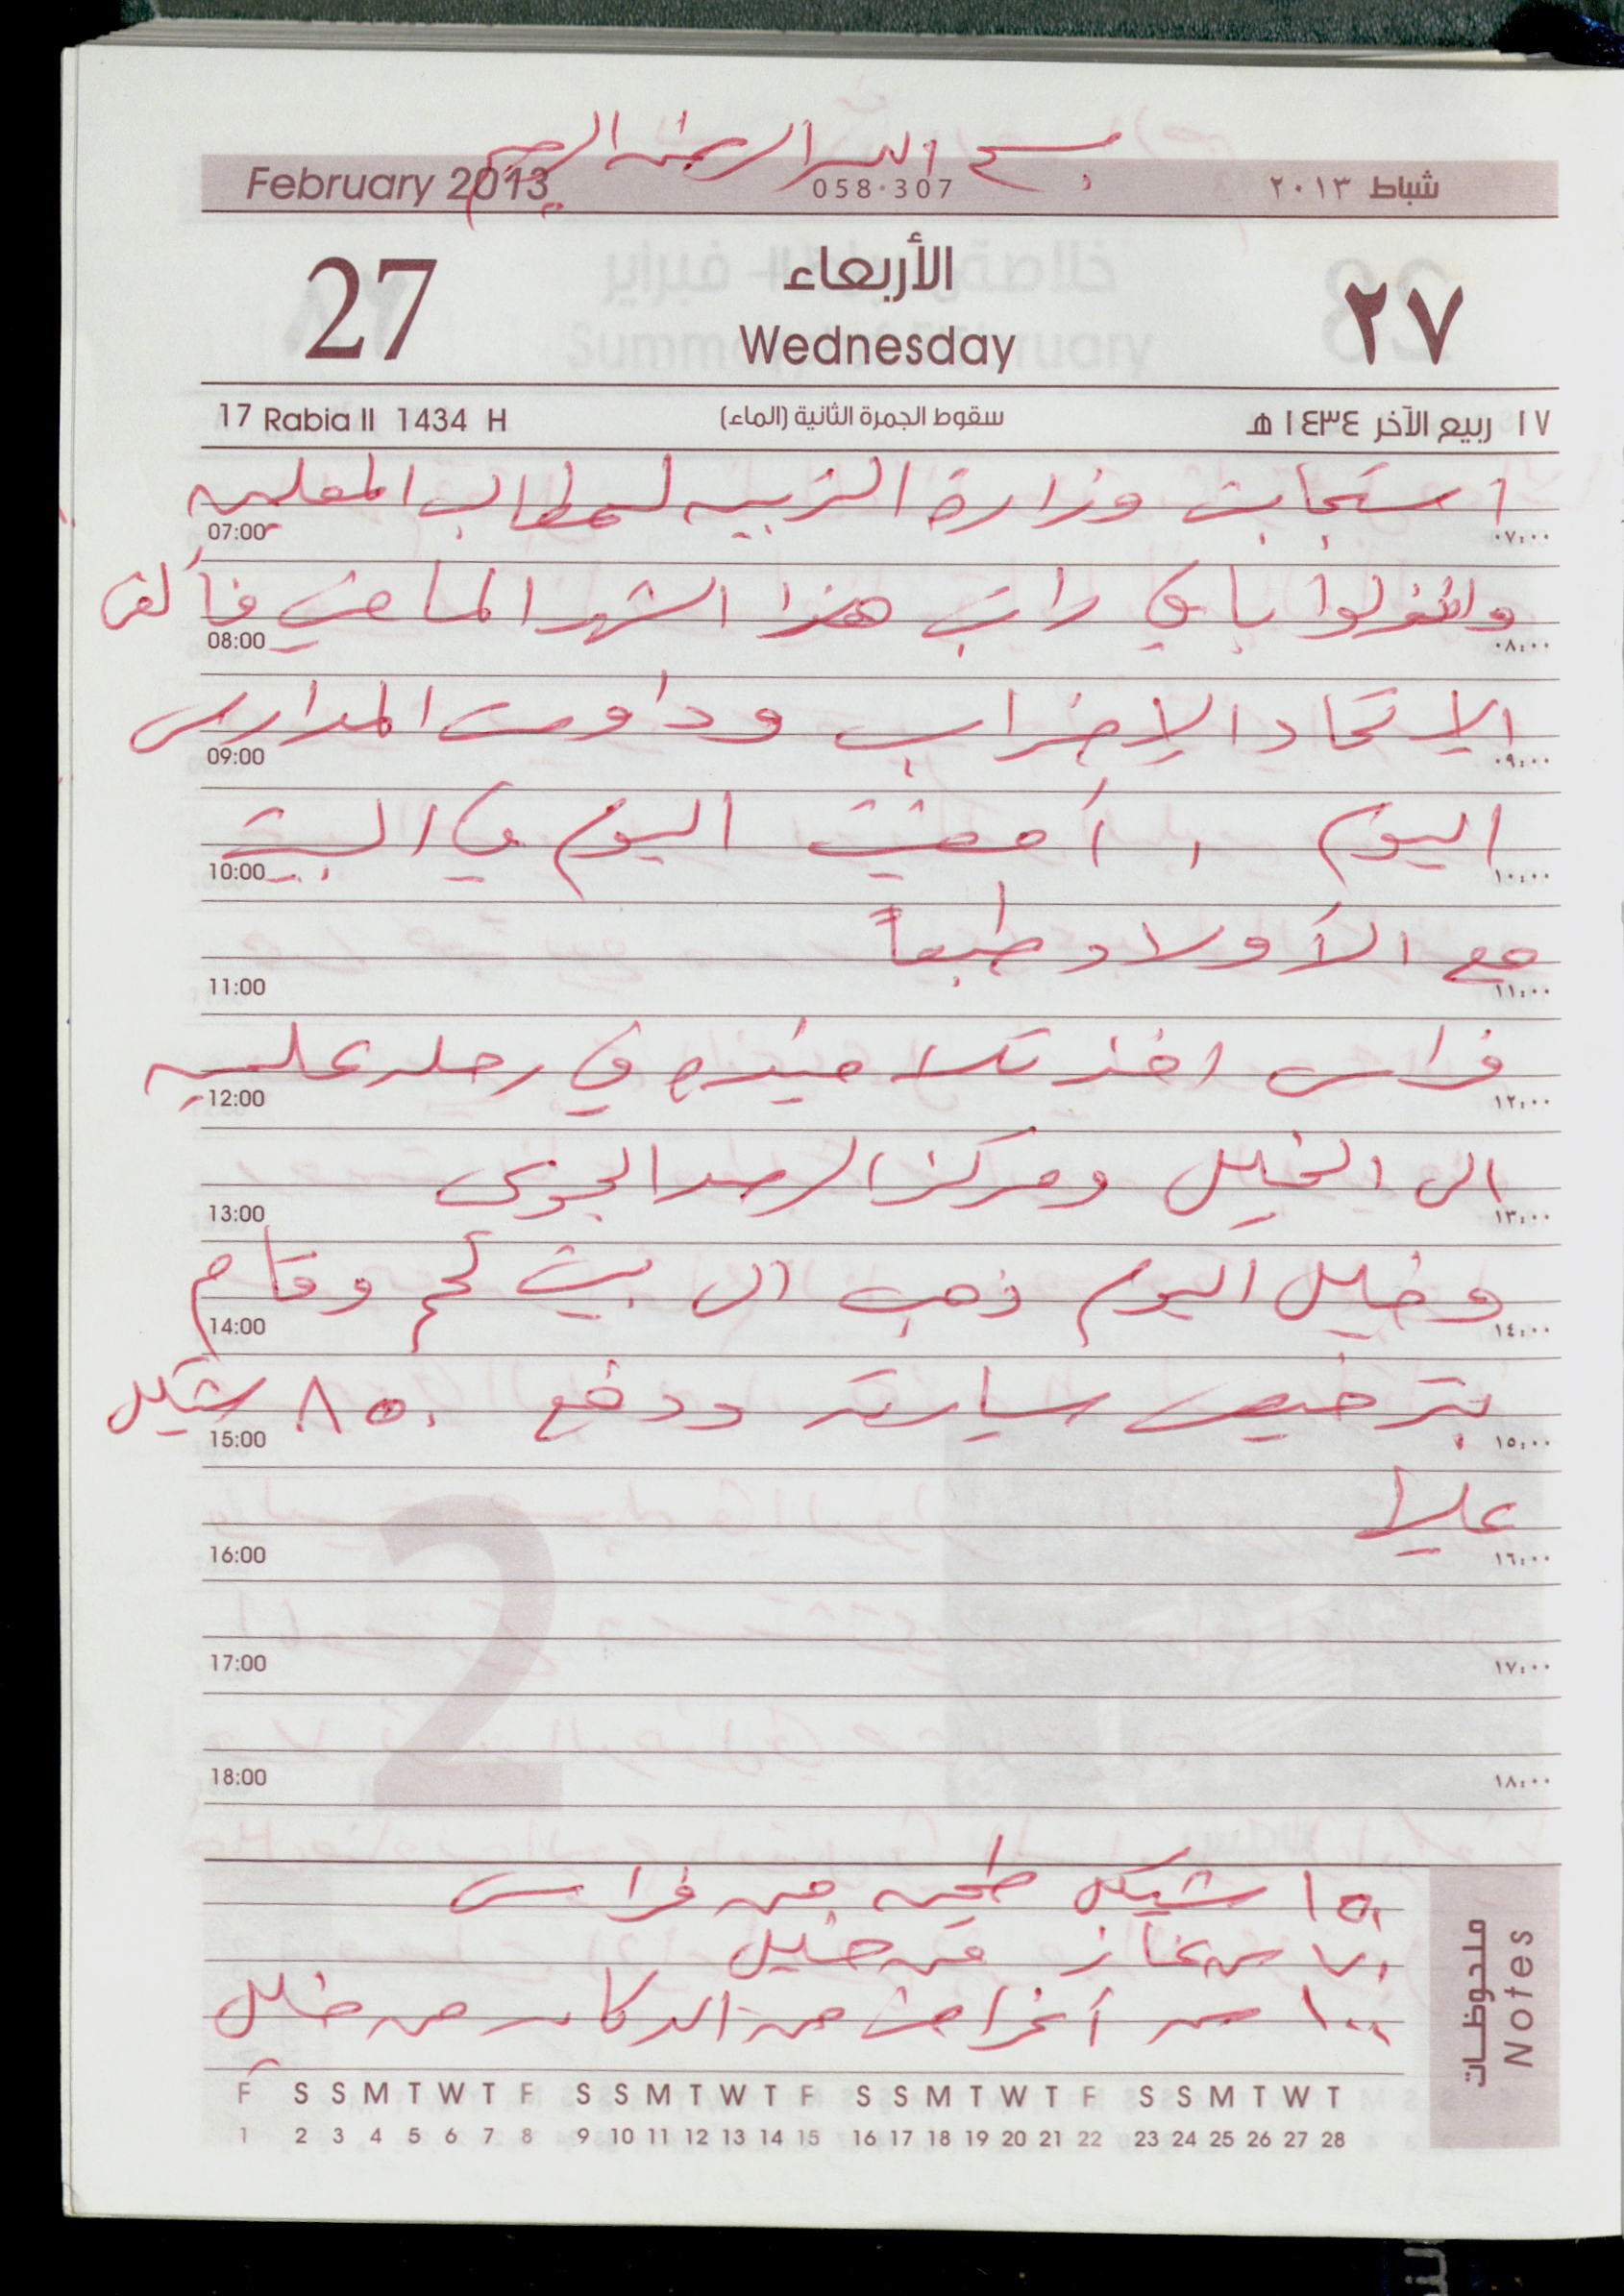 بسم الله الرحمن الرحيم
February 2013 058·307 شباط ٢٠١٣
27 الأربعاء ٢٧
Wednesday
17 Rabia II 1434 H سقوط الجمرة الثانية (الماء) ١٧ ربيع الآخر ١٤٣٤ هـ
استجابت وزارة التربيه لمطالب المعلمين
07:00 ٠٧:٠٠
باقي راتب هذا الشهر الماضي فألغى
08:00 ٠٨:٠٠
الاتحاد الإضراب وداومت المدارس
09:00 ٠٩:٠٠
اليوم ، أمضيت اليوم في البيت
10:00 ١٠:٠٠
مع الأولاد طبعاً
11:00 ١١:٠٠
فراس اخذ تلاميذه في رحله علميه
12:00 ١٢:٠٠
الى الخليل ومركز الرصد الجوي
13:00 ١٣:٠٠
وخليل اليوم ذهب الى بيت لحم وقام
14:00 ١٤:٠٠
بترخيص سيارته ودفع ٨٥٠ شيكل
15:00 ١٥:٠٠
عليها
16:00 ١٦:٠٠
17:00 ١٧:٠٠
2
18:00 ١٨:٠٠
ملحوظات
Notes
١٥٠ شيكل طحين من فراس
٧٠ ثمن غاز من خليل
١٠٠ ثمن أغراض من الدكان من خليل
F S S M T W T F S S M T W T F S S M T W T F S S M T W T
1 2 3 4 5 6 7 8 9 10 11 12 13 14 15 16 17 18 19 20 21 22 23 24 25 26 27 28